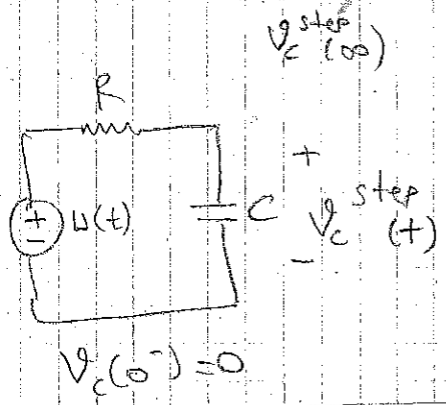 v_c^step (∞)
R
+
u(t)
C
v_c^step (t)
-
v_c(0^-) = 0